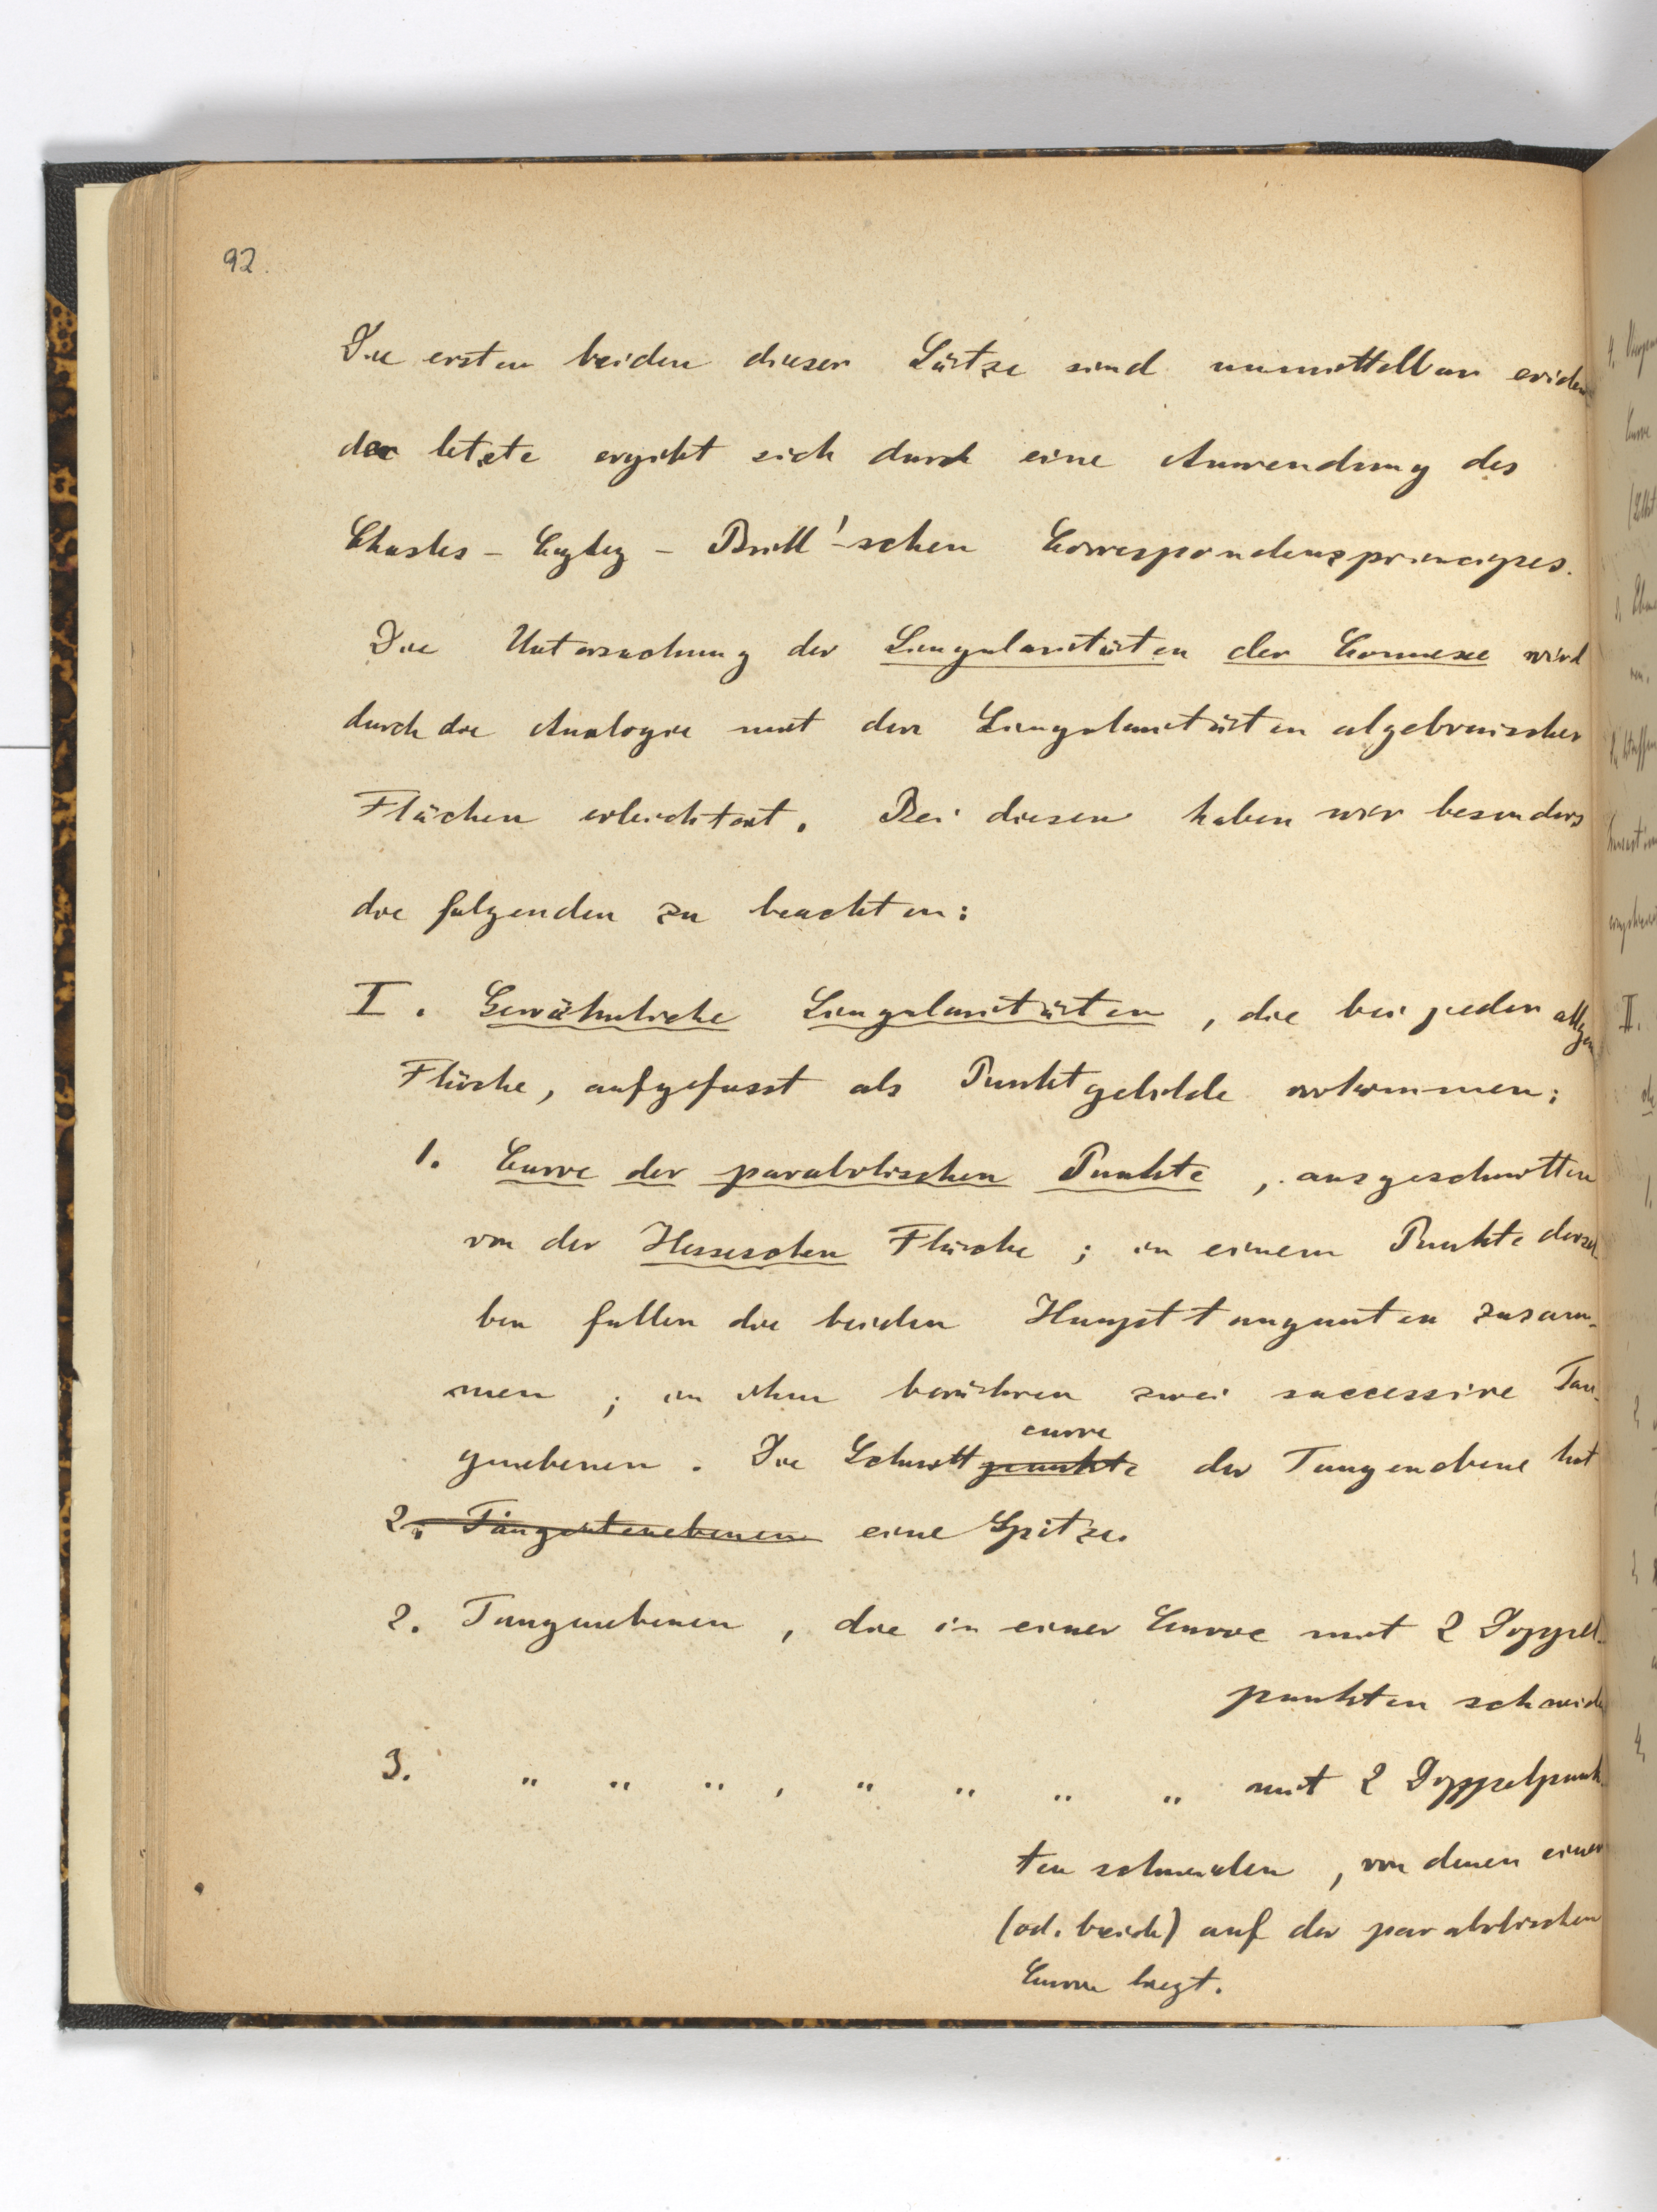 92.
Die ersten beiden dieser Sätze sind unmittelbar eviden
der letzte ergibt sich durch eine Anwendung des
Chasles - Cayley - Brill'-schen Correspondenzprincipes.
Die Untersuchung der Singularitäten der Connexe wird
durch die Analogie mit den Singularitäten algebraischer
Flächen erleichtert. Bei diesen haben wir besonders
die folgenden zu beachten:
I. Gewöhnliche Singularitäten, die bei jeder allgem
Fläche, aufgefasst als Punktgebilde vorkommen:
1. Curve der parabolischen Punkte, ausgeschnitten
von der Hesseschen Fläche; in einem Punkte dersel
ben fallen die beiden Haupttangenten zusam-
men; in ihm berühren zwei successive Tan-
curve
genebenen. Die Schnittpunkte der Tangenebene hat
2. Tangentenebenen eine Spitze.
2. Tangenebenen, die in einer Curve mit 2 Doppel-
punkten schneid
3. " " " , " " " " mit 2 Doppelpunk
ten schneiden, von denen einer
(od. beide) auf der parabolischen
Curve liegt.
II.